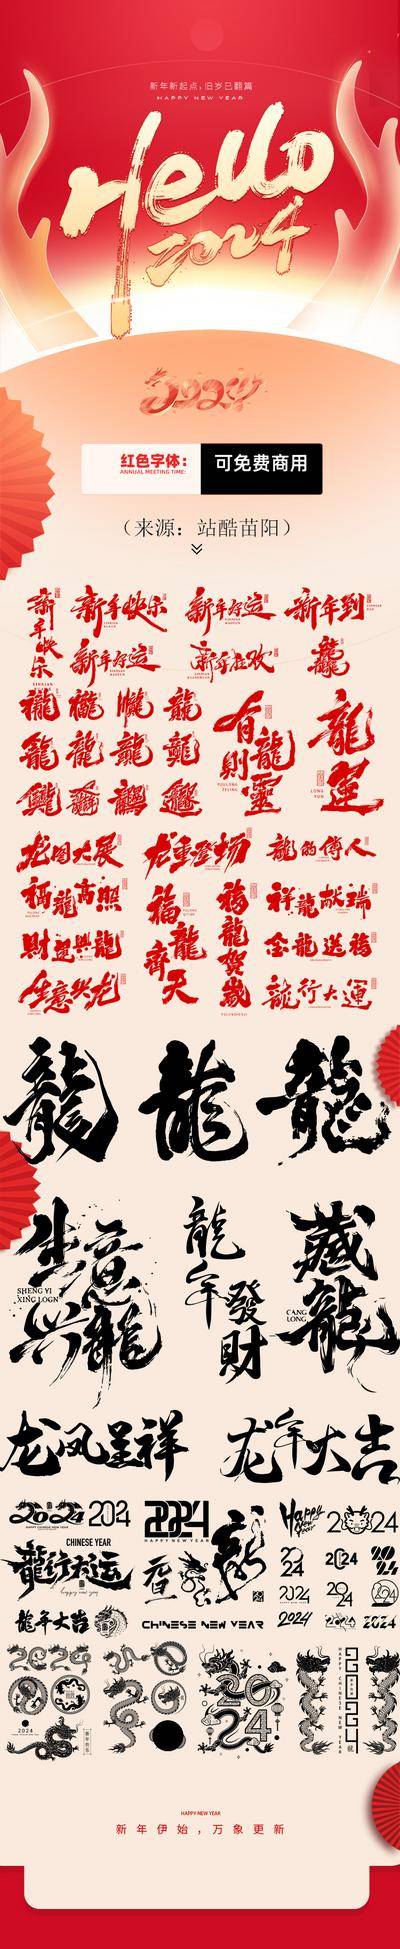 新年新起点，旧岁已翻篇
HAPPY NEW YEAR
Hello
2024
2024
红色字体：
ANNUAL MEETING TIME:
可免费商用
（来源：站酷苗阳）
新年快乐
新年快乐
新年好运
新年到
新年好运
新年狂欢
龍
龍
龍
龍
龍
龍
龍
龍
龍
有龍則靈
YOULONG
ZELING
龍運
LONG
YUN
龙图大展
龙重登场
龍的傳人
福龍高照
福龍齊天
福龍贺歲
祥龍献瑞
財運興龍
金龍送福
生意兴龙
龍行大運
龍
龍
龍
生意兴龍
SHENG YI
XING LOGN
龍年發財
藏龍
CANG
LONG
龙凤呈祥
龙年大吉
2024
2024
2024
HAPPY NEW YEAR
Happy New Year
2024
CHINESE YEAR
龍行大运
happy new year
2024
2024
2024
2024
2024
龍年大吉
CHINESE NEW YEAR
2024
2024
2024
2024
2024
2024
HAPPY CHINESE NEW YEAR
2024
HAPPY NEW YEAR
新年伊始，万象更新